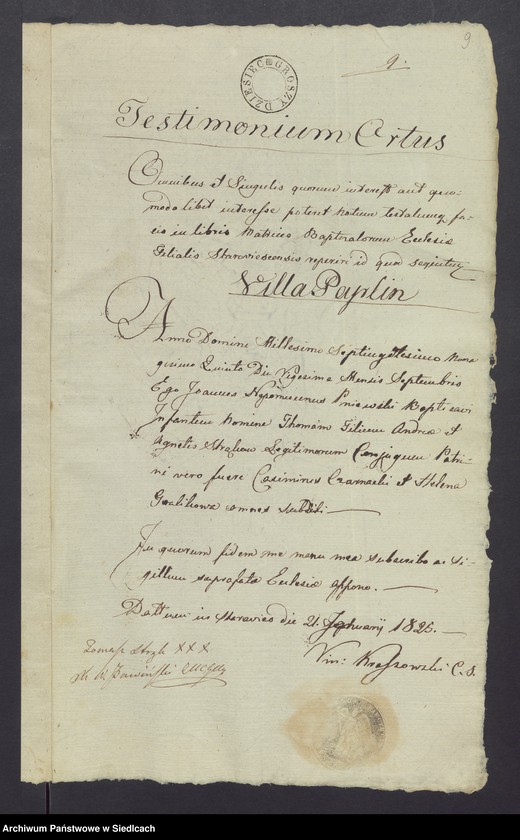 9
9.
DZIESIĘC GROSZY
Testimonium Ortus
Omnibus et Singulis quorum interest aut quo-
modo libet interesse potest notum testatumq fa-
cio in libris Metrices Baptisatorum Ecclesia
Filialis Starowiescensis reperiri id quod sequitur
Villa Paplin
Anno Domini Millesimo Septingetesimo Nona
gesimo Quinto Die Vigesima Mensis Septembris
Ego Joannes Nepomucenus Pniewski Baptisavi
Infantem Nomine Thomam Filium Andreæ et
Agnetis Legitimorum Conjugum Patri-
ni vero fuere Casimirus Czarnacki et Helena
omnes Subditi
In quorum fidem me manu mea subscribo ac Si-
gillum suprafatæ Ecclesiæ appono.
Dattum in Starawies die 21. January 1822.
Vin: Kraszowski C. S.
Tomasz XXX